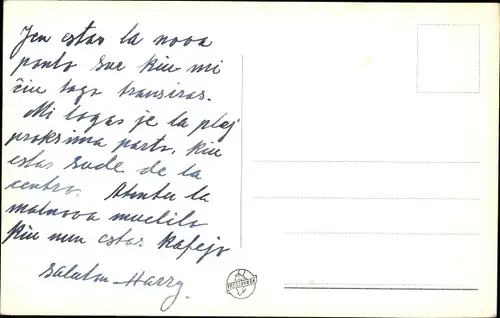 Jen estas la nova
ponto sur kiu mi
ĉiu tago transiras.
Mi loĝas je la plej
proksima parto, kiu
estas sude de la
centro. Atentu la
malnova muelilo
kiu nun estas kafejo
Saluton - Harry.